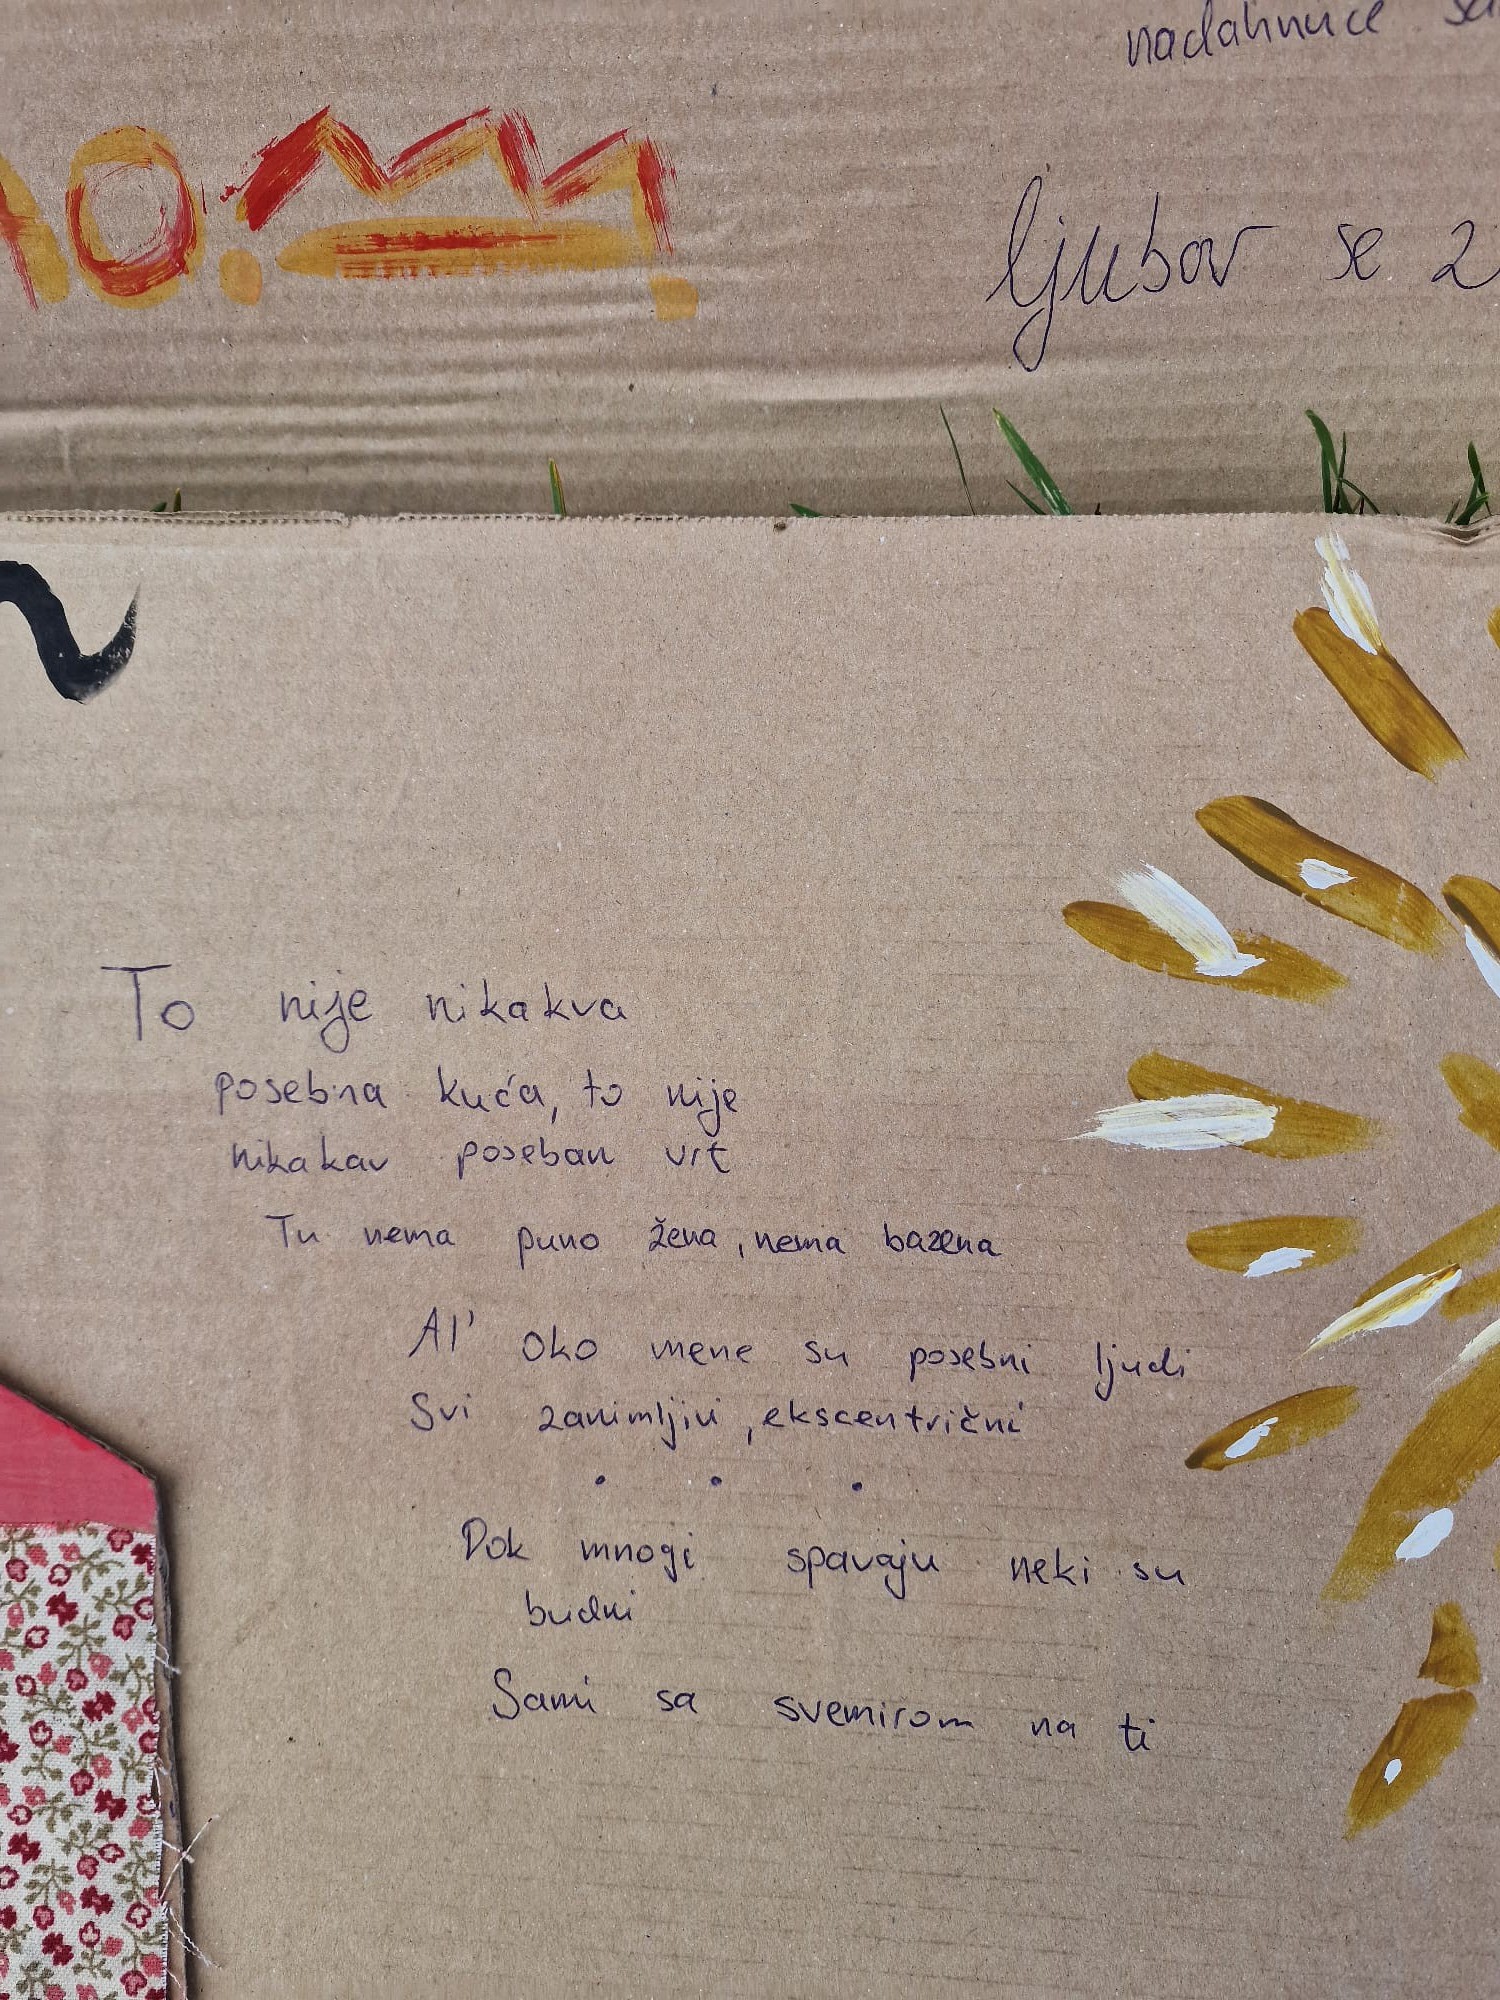 nadahnuće
ljubov se
To nije nikakva
posebna kuća, to nije
nikakav poseban vrt
Tu nema puno žena, nema bazena
Al' oko mene su posebni ljudi
Svi zanimljivi, ekscentrični
. . .
Dok mnogi spavaju neki su
budni
Sami sa svemirom na ti